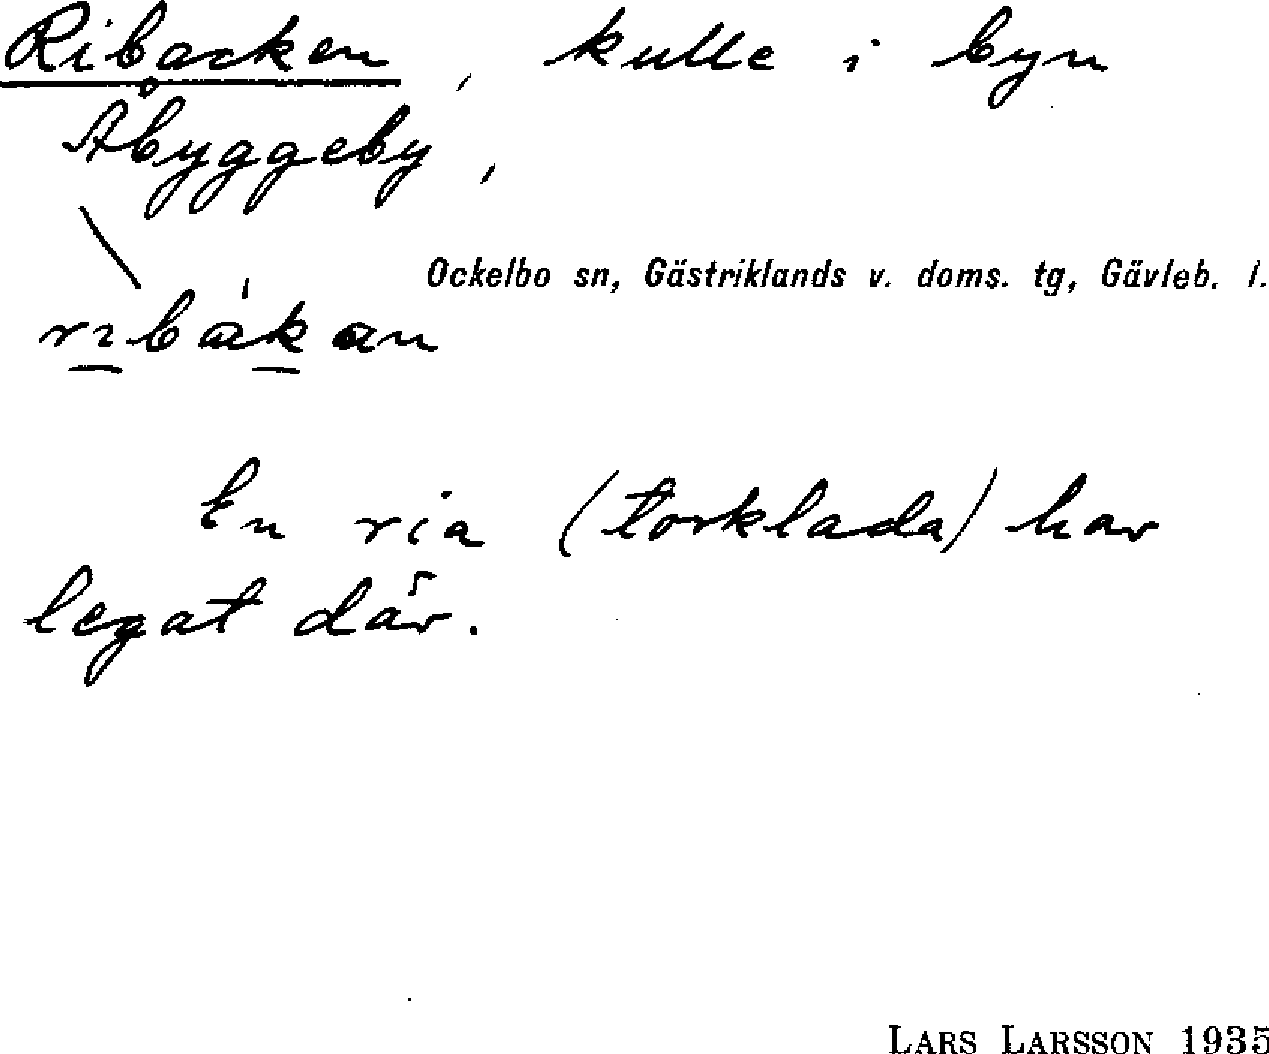 Ribacken, kulle i byn
Åbyggeby,
Ockelbo sn, Gästriklands v. doms. tg, Gävleb. l.
rıbákan
En ria (torklada) har
legat där.
LARS LARSSON 1935